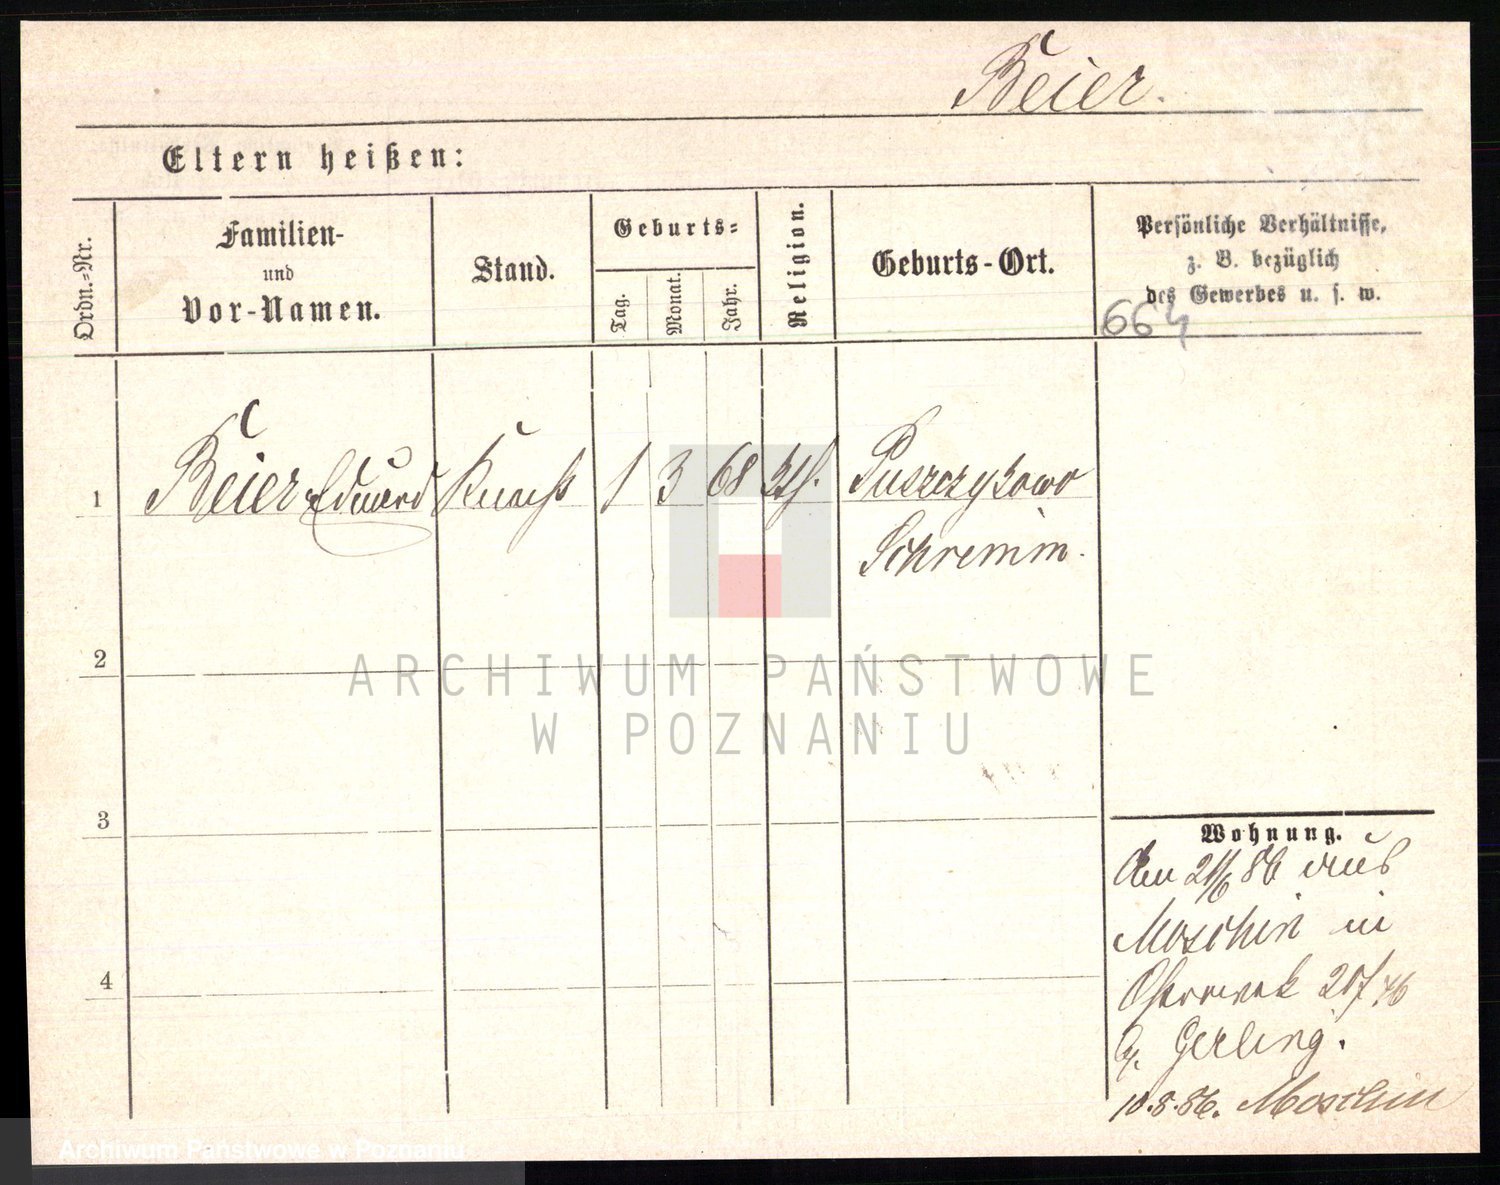 Beier.
Eltern heißen:
Ordn.-Nr.
Familien-
und
Vor-Namen.
Stand.
Geburts-
Tag.
Monat.
Jahr.
Religion.
Geburts-Ort.
Persönliche Verhältnisse,
z. B. bezüglich
des Gewerbes u. s. w.
664
1 Beier Eduard Knecht 1 3 68 kth. Puszczykowo
Schrimm.
2
3
4
Wohnung.
Am 21/6 86 aus
Moschin in
Gerling.
10.8.86. Moschin
ARCHIWUM PAŃSTWOWE
W POZNANIU
Archiwum Państwowe w Poznaniu